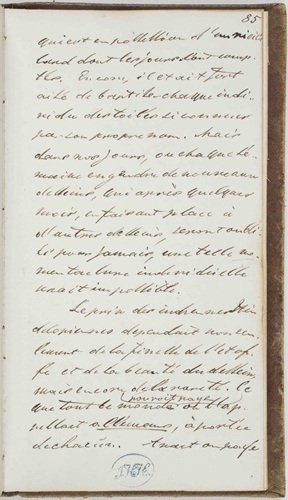 85
qui est en possession d'un vieil
lard dont les jours sont comp-
tés. Encore, il etait fort
aisé de baptiser chaque indi-
vidu des toiles si connues
par son propre nom. Mais
dans nos jours, ou chaque se-
maine engendre de nouveaux
dessins, qui après quelques
mois, en faisant place à
d'autres dessins, seront oubli-
és pour jamais, une telle no-
menclature individuelle
serait impossible.
Le prix des indiennes
des pièces dépendait non seu-
lement de la finesse de l'etof-
fe et de la beauté du dessin,
mais encore de la rareté. Ce
pouvait payer
que tout le monde
à portée
de chacun. Avait on payé